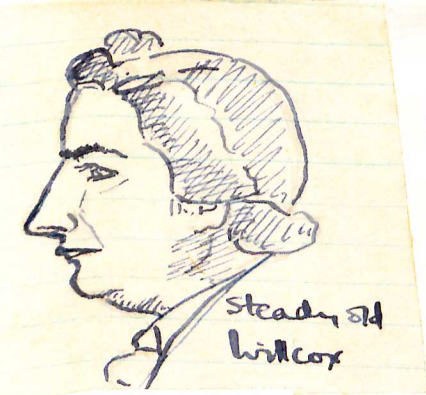 steady old
Willcox